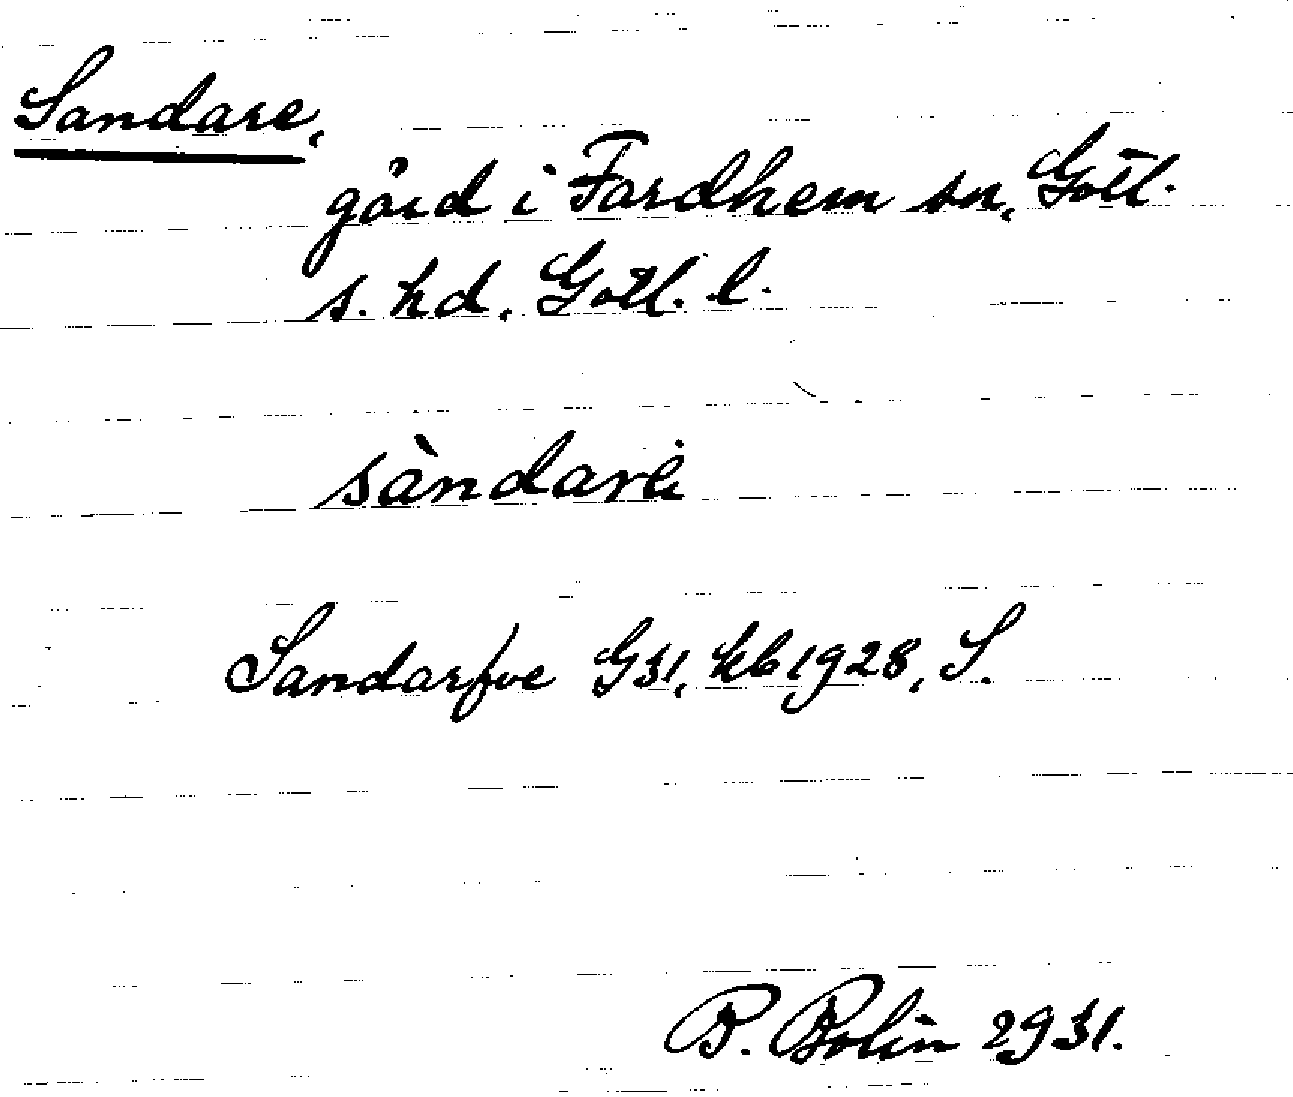 Sandare,
gård i Fardhem sn, Gotl.
s. hd, Gotl. l.
sàndarə
Sandarfve G31, kb 1928, S.
B. Bolin 2931.